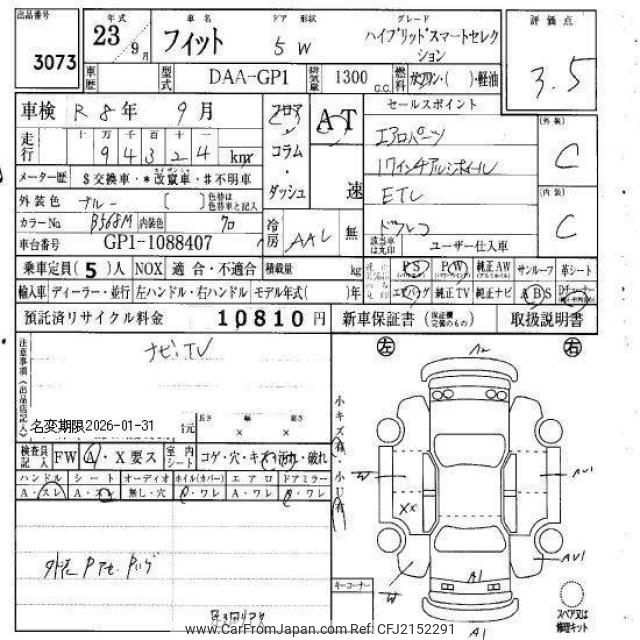 出品番号 3073
年式 23 9月
車名 フィット
ドア 形状 5 W
グレード ハイブリッドスマートセレクション
評価点 3.5
車歴
型式 DAA-GP1
排気量 1300 C.C.
燃料 ガソリン・( )・軽油
車検 R 8年 9月
走行 十万千百十一 94324 km
フロア コラム・ダッシュ
AT 速
セールスポイント
エアロパーツ
17インチアルミホイール
ETC
ドラレコ
(外装) C
(内装) C
メーター歴 $交換車・*改竄車・#不明車
外装色 ブルー [ ] 色替は色替車と記入
カラーNo B568M 内装色 クロ
冷房 AAC 無
該当車は丸印 ユーザー仕入車
車台番号 GP1-1088407
乗車定員(5)人 NOX 適合・不適合 積載量 kg
PS PW 純正AW サンルーフ 革シート
輸入車 ディーラー・並行 左ハンドル・右ハンドル モデル年式( )年
エアバッグ 純正TV 純正ナビ ABS Dチューナー
預託済リサイクル料金 10810円
新車保証書 (保証欄完備のもの) 取扱説明書
注意事項(出品店記入)
ナビ・TV
名変期限2026-01-31
長さ 幅 高さ
× ×
検査員記入 FW A・X要ス 室内シート コゲ・穴・キズ・汚れ・破れ
ハンドル シート オーディオ ホイル(カバー) エアロ ドアミラー
A・スレ A・ス 無し・穴 A・ワレ A・ワレ A・ワレ
小キズ有・小U有
左 右
A2
W
AU1
XX
AU1
W
A1
A1
キーコーナー
スペア又は修理キット
www.CarFromJapan.com Ref: CFJ2152291